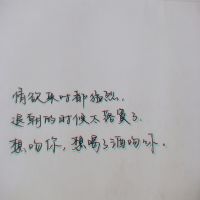 情欲来时都猛烈.
退潮的时候太落寞了.
想吻你, 想喝了酒吻你.